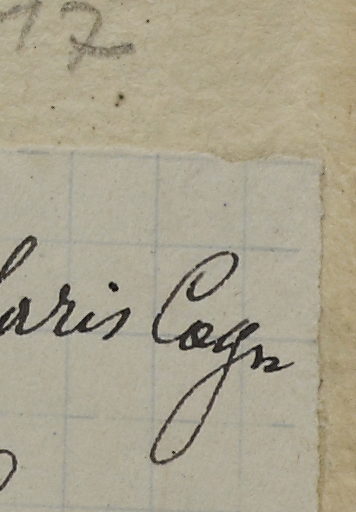 17
laris Cogn